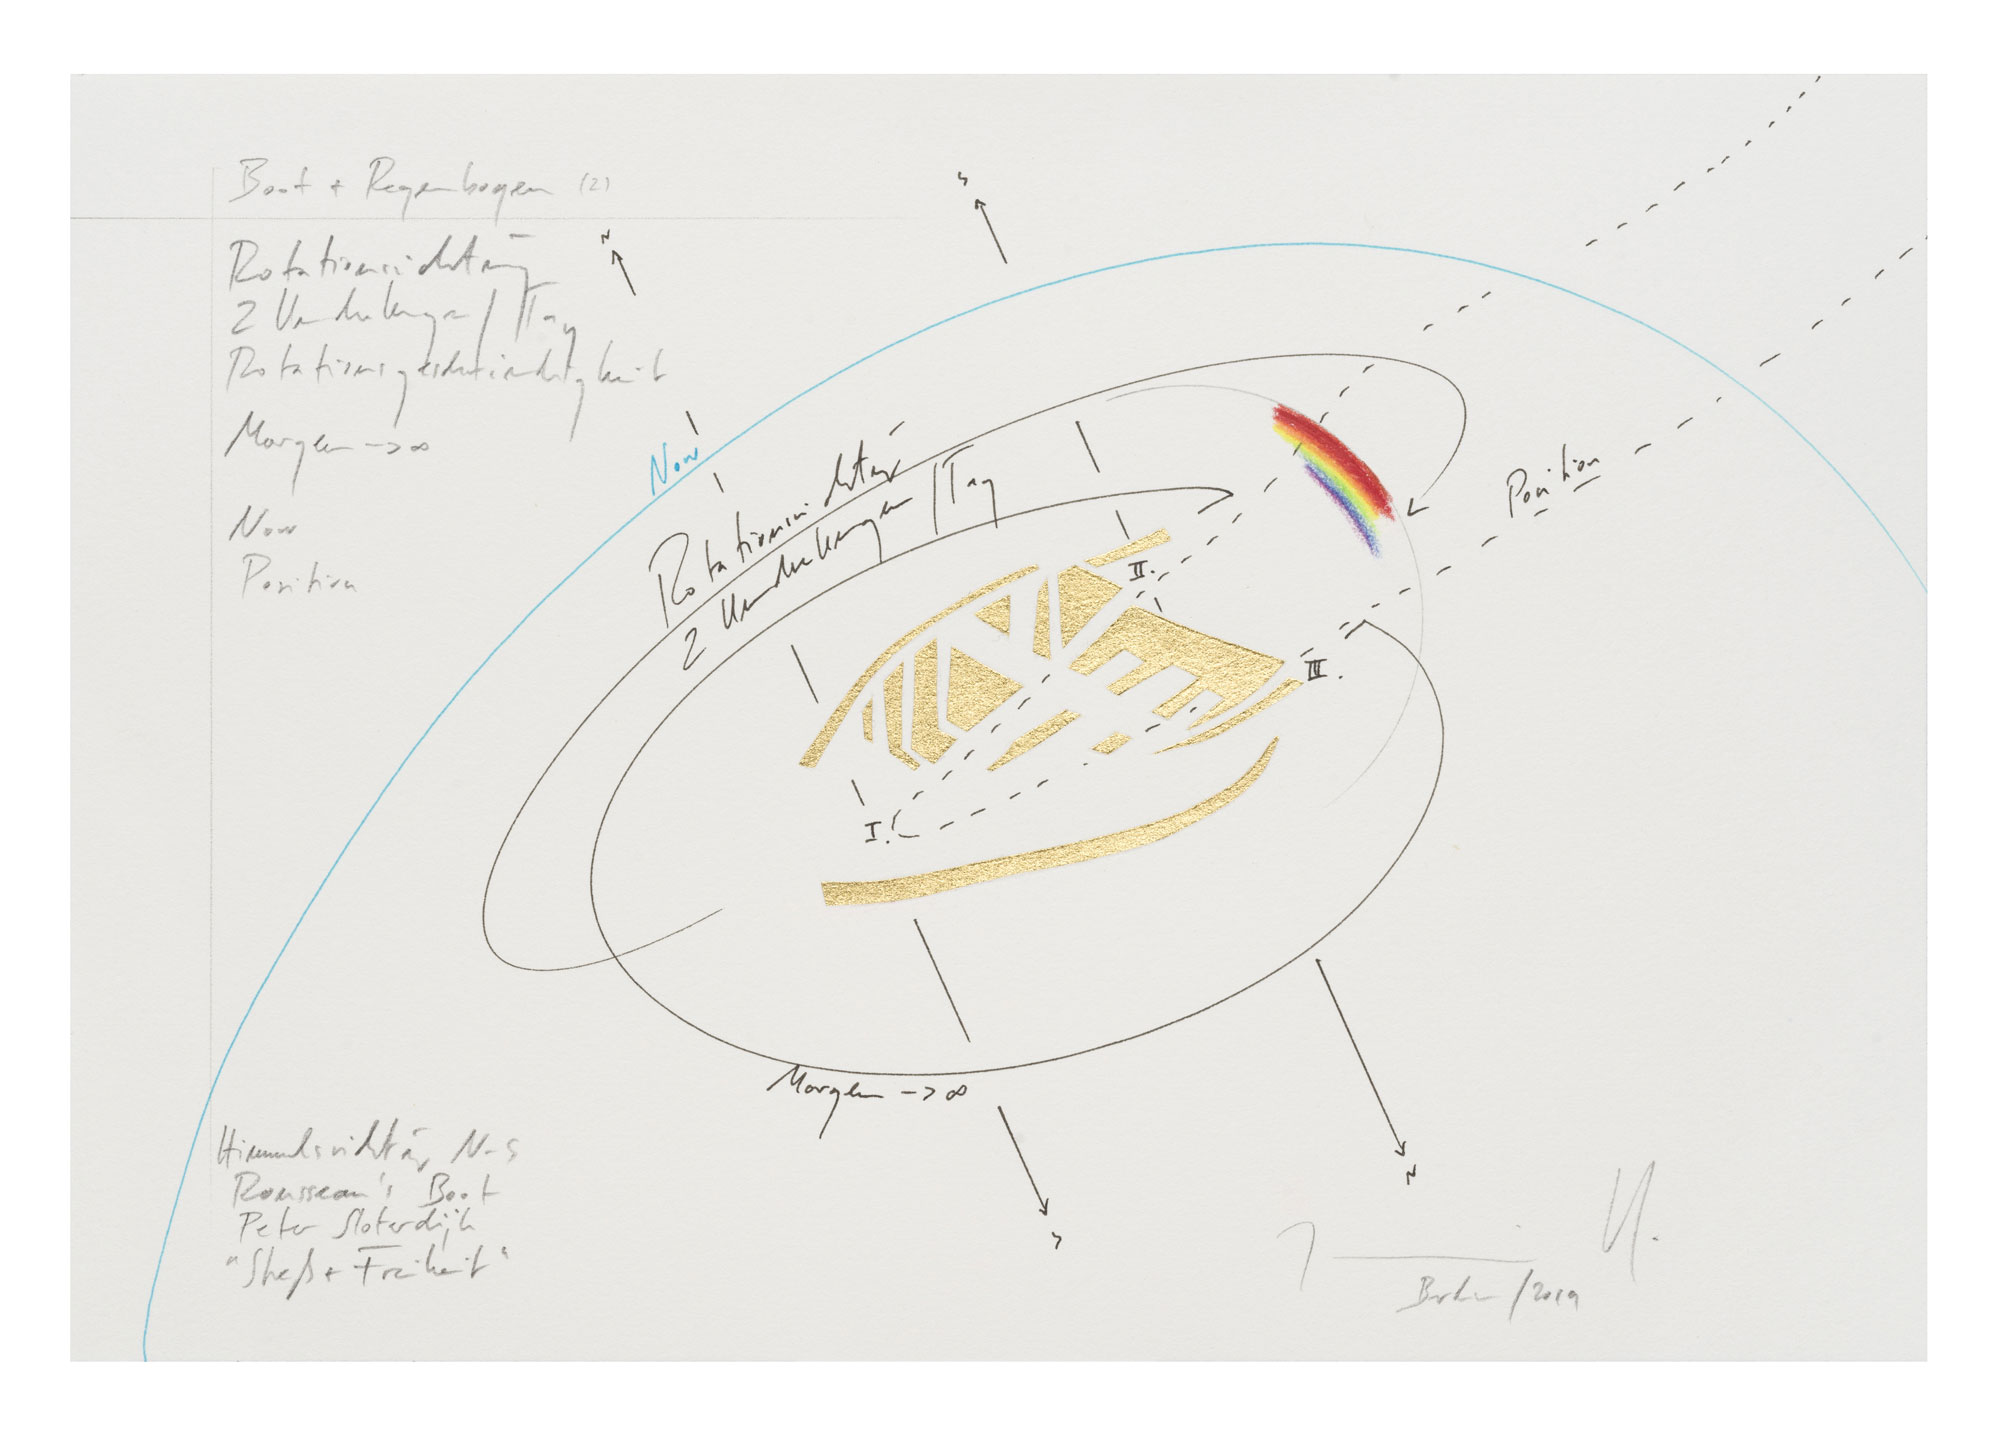 Boot + Regenbogen (2)
Rotationsrichtung
2 Umdrehungen / Tag
Rotationsgeschwindigkeit
Morgen -> ∞
Now
Position
N
S
Now
Rotationsrichtung
2 Umdrehungen / Tag
Position
II.
III.
I.
Morgen -> ∞
S
N
Himmelsrichtung N-S
Rousseau's Boot
Peter Sloterdijk
"Streß + Freiheit"
Berlin / 2019